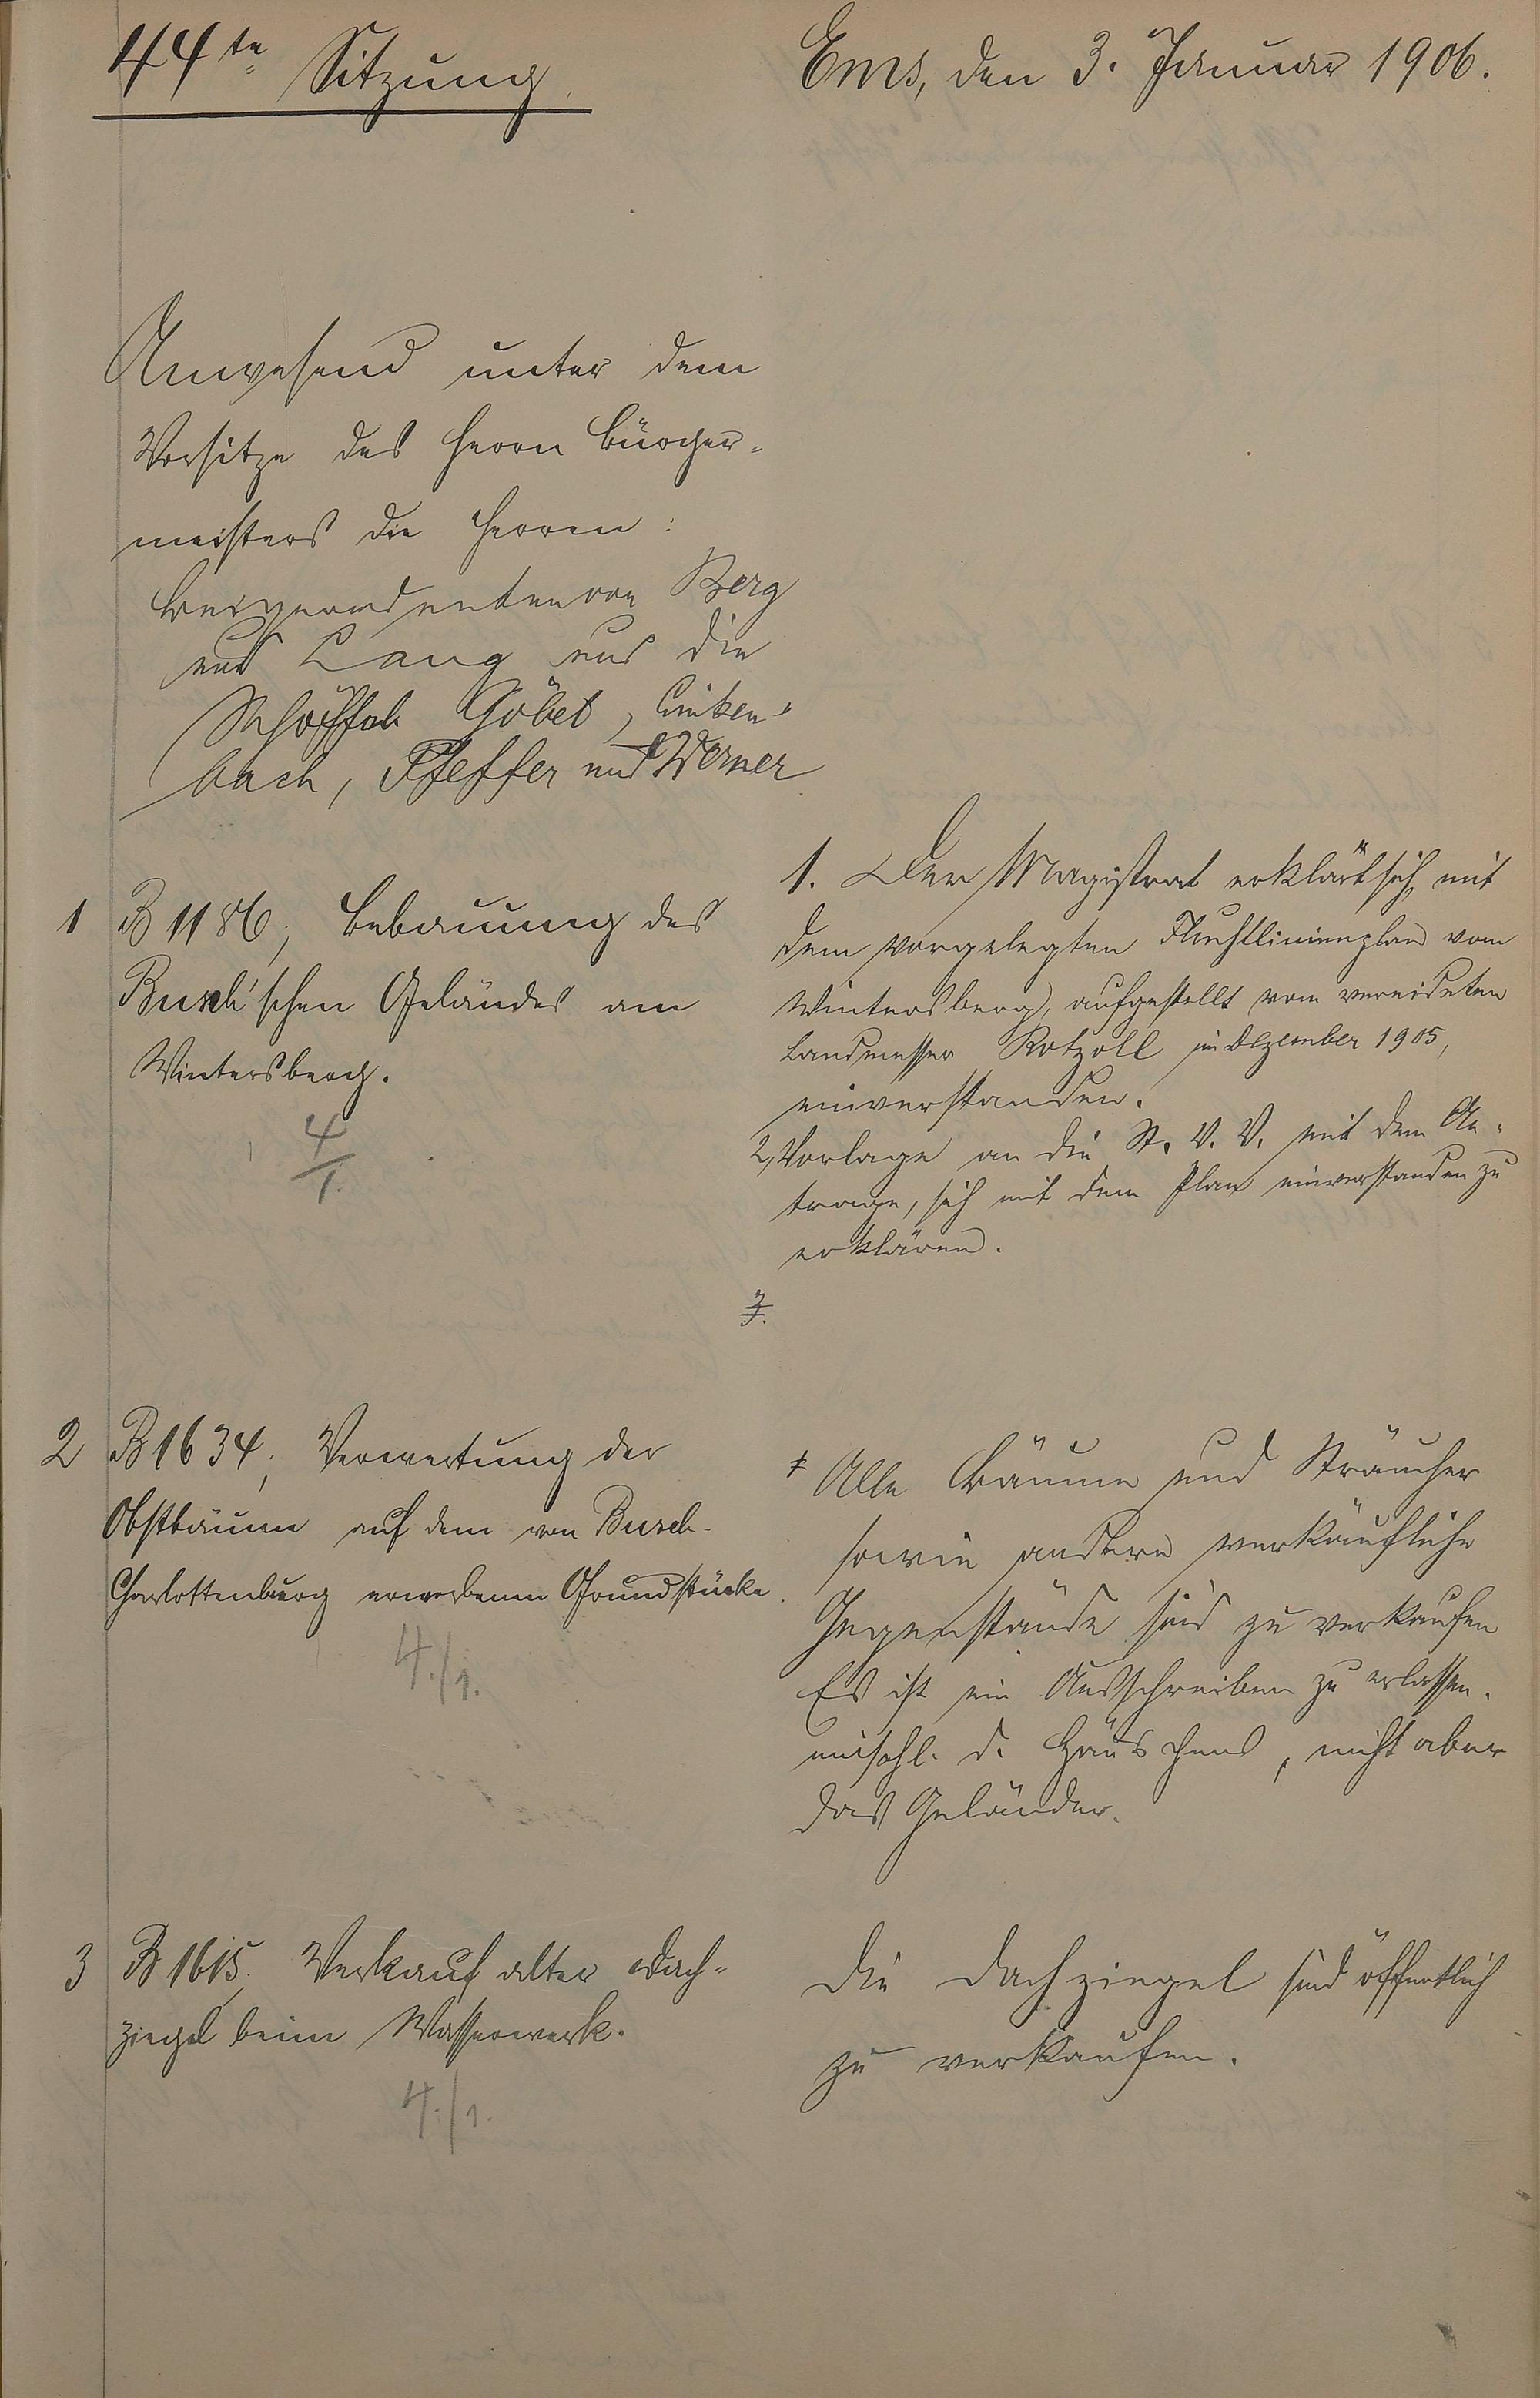 44te Sitzung
Ems, den 3. Januar 1906.
Anwesend unter dem
Vorsitze des Herrn Bürger-
meisters die Herren:
Beigeordneten von Berg
und Lang und die
Schöffen Göbel, Linken-
bach, Pfeffer und Werner
1 B 1186, Bebauung des
Busch'schen Geländes am
Wintersberg.
4/1.
1. Der Magistrat erklärt sich mit
dem vorgelegten Fluchtlinienplan vom
Wintersberg, aufgestellt vom vereideten
Landmesser Rotzoll im Dezember 1905,
einverstanden.
2, Vorlage an die St. V. V. mit dem An-
trage, sich mit dem Plan einverstanden zu
erklären.
3.
2 B 1634, Verwertung der
Obstbäume auf dem von Busch-
Charlottenburg erworbenen Grundstücke.
4./1.
Alle Bäume und Sträucher
sowie andere verkäufliche
Gegenstände sind zu verkaufen
Es ist ein Ausschreiben zu erlassen.
einschl. d. Häuschens, nicht aber
das Geländer.
3 B 1615, Verkauf alter Dach-
ziegel beim Wasserwerk.
4./1.
Die Dachziegel sind öffentlich
zu verkaufen.